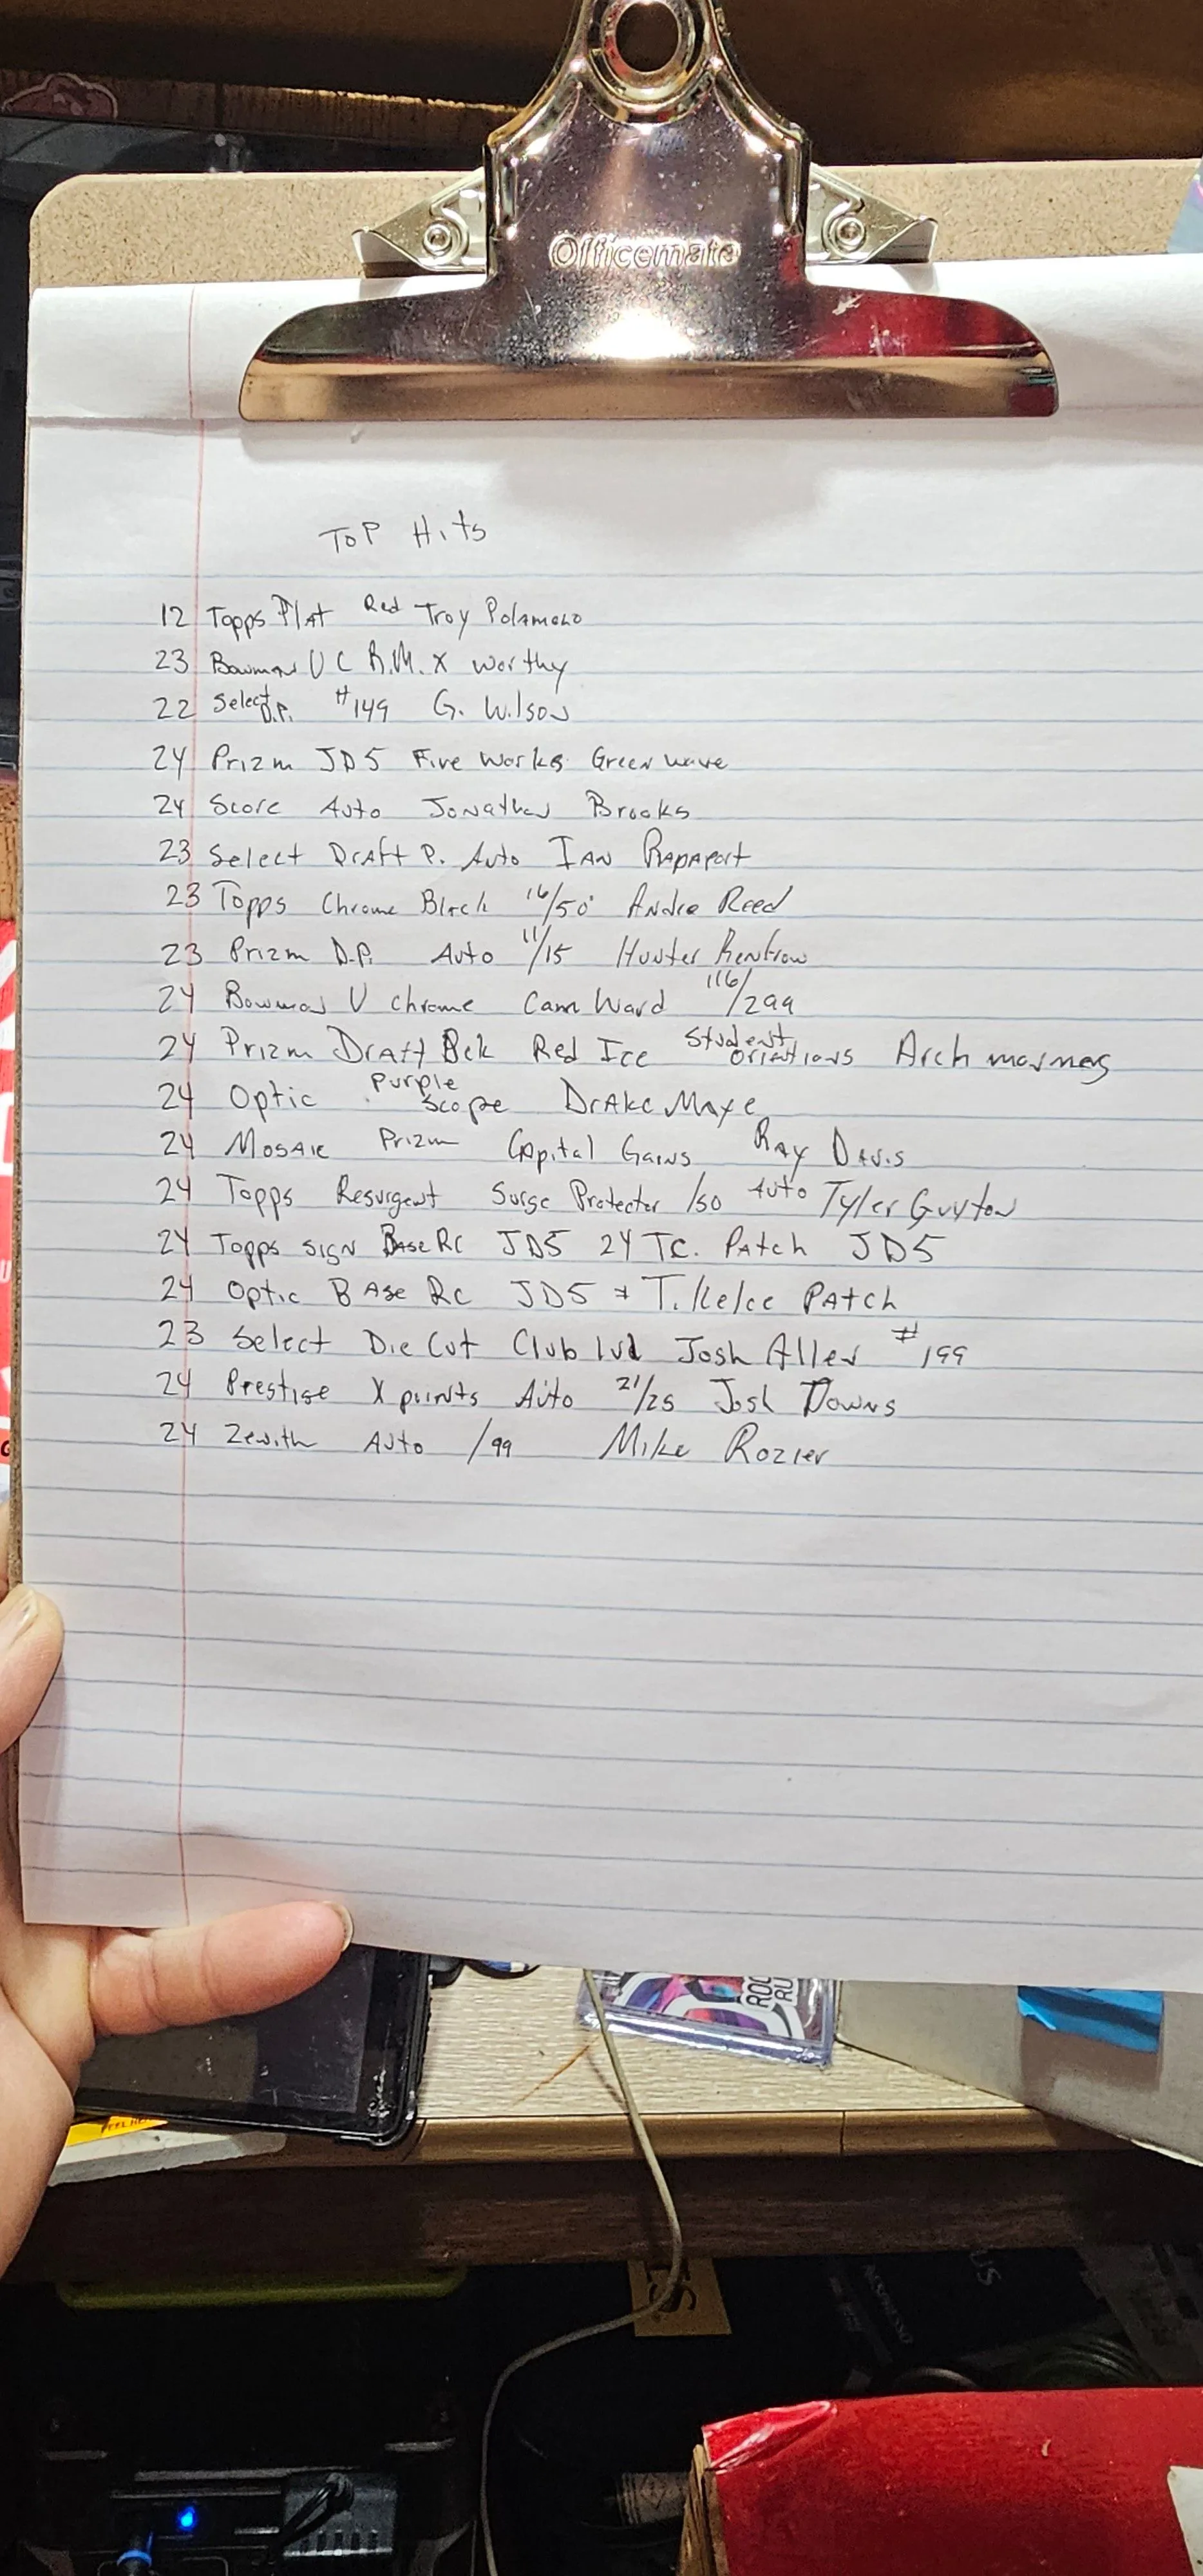 Officemate
Top Hits
12 Topps Plat Red Troy Polamolo
23 Bowman U C R.M. X worthy
22 Select D.P. #149 G. Wilson
24 Prizm JD5 Fire Works Green wave
24 Score Auto Jonathan Brooks
23 Select Draft P. Auto Ian Rapaport
23 Topps Chrome Black 16/50 Andre Reed
23 Prizm D.P. Auto 11/15 Hunter Renfrow
24 Bowman U chrome Cam Ward 116/299
24 Prizm Draft Red Ice Student Arch
24 Optic Purple Scope Drake Maye
24 Mosaic Prizm Capital Gains Ray Davis
24 Topps Resurgent Surge Protector /50 Auto Tyler Guyton
24 Topps Sign Base Rc JD5 24 TC. Patch JD5
24 Optic Base Rc JD5 + T. Kelce Patch
23 Select Die Cut Club lvl Josh Allen #199
24 Prestige X points Auto 21/25 Josh Downs
24 Zenith Auto /99 Mike Rozier